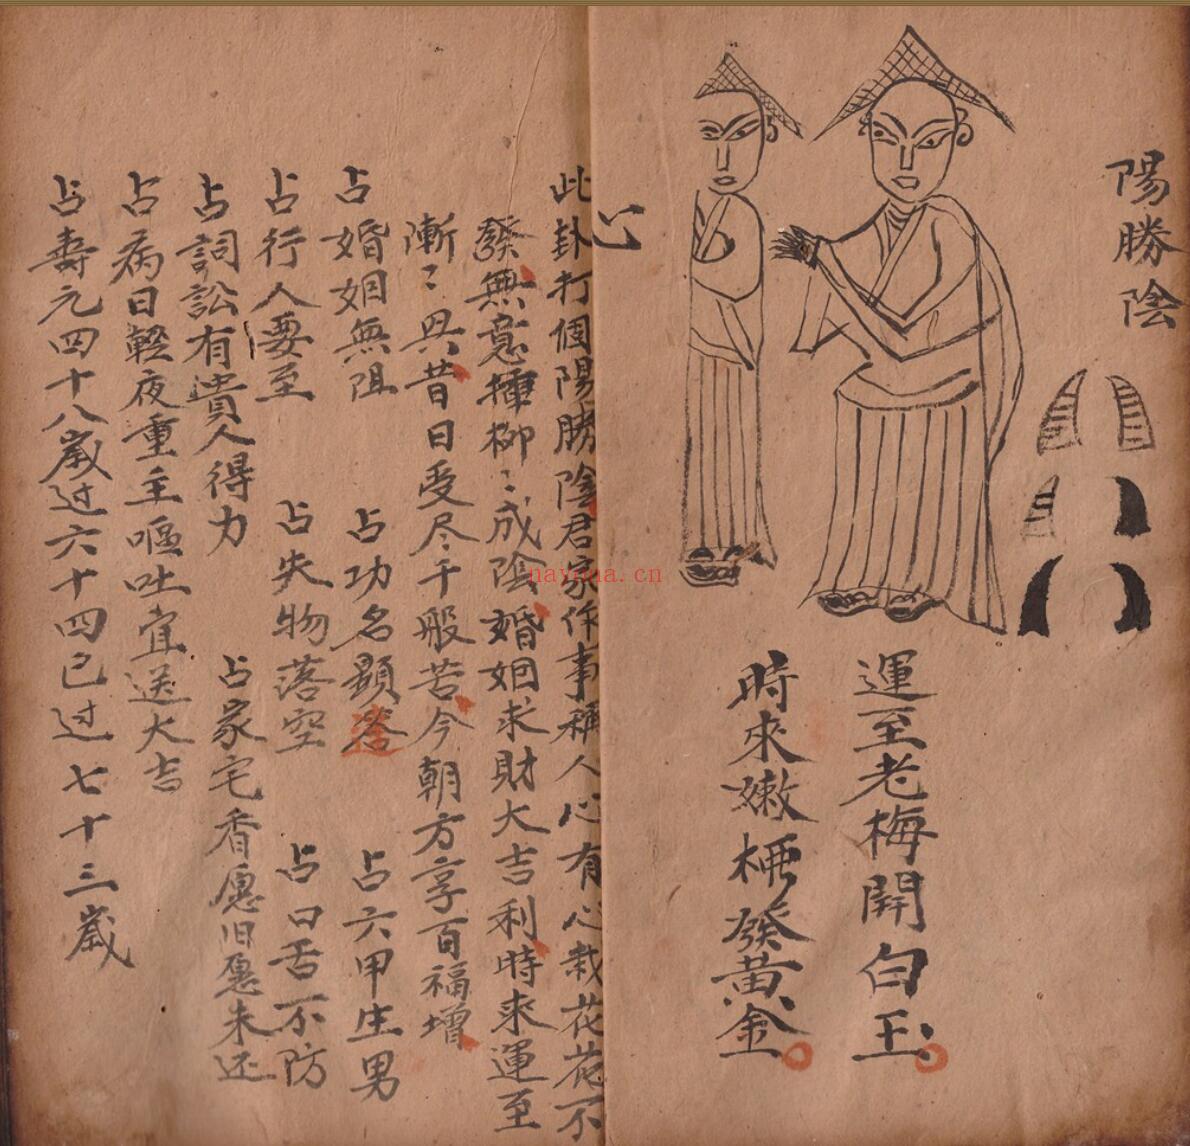 陽勝陰
運至老梅開白玉
時來嫩柳發黃金
心
此卦打個陽勝陰君家作事稱人心有心栽花花不
發無意揷柳〻成陰婚姻求財大吉利時來運至
漸〻興昔日受尽千般苦今朝方享百福增
占婚姻無阻 占功名顯答達 占六甲生男
占行人要至 占失物落空 占口舌不防
占詞訟有貴人得力 占家宅香愿旧愿未还
占病日輕夜重主嘔吐宜送大吉
占壽元四十八歲过六十四已过七十三歲
nayona.cn